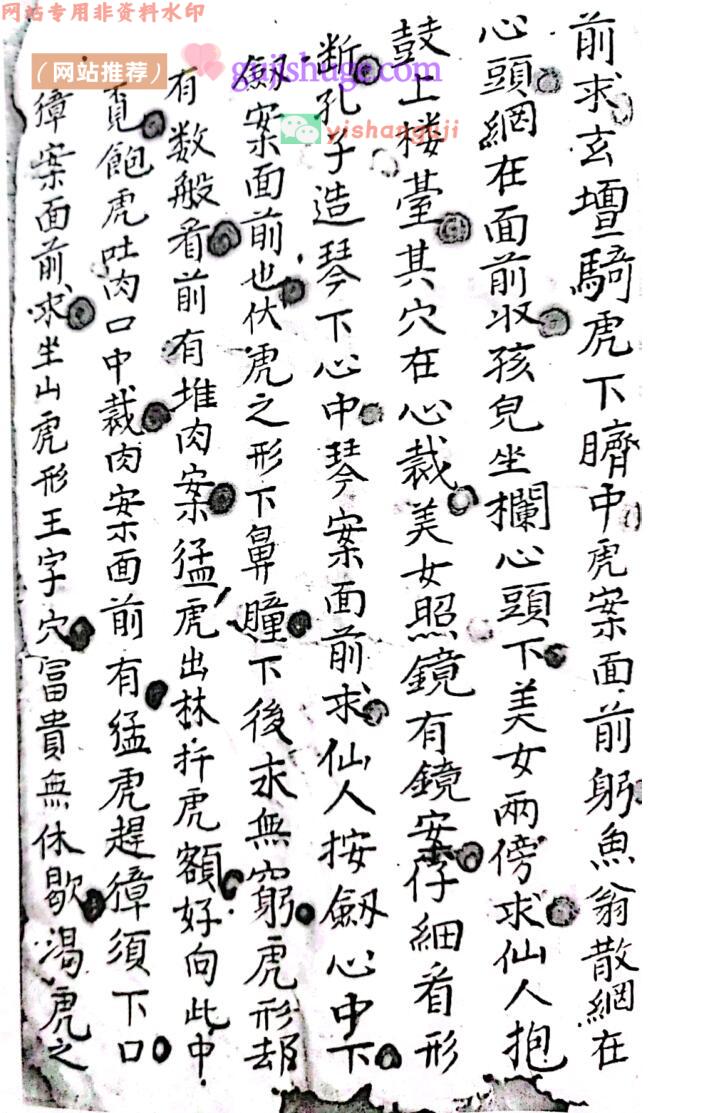 网站专用非资料水印
（网站推荐）
gujishuge.com
yishanguji
前求玄壇騎虎下臍中虎案面前躬魚翁散網在
心頭網在面前收孩兒坐欄心頭下美女兩傍求仙人抱
鼓上楼臺其穴在心裁美女照鏡有鏡案仔細看形
断孔子造琴下心中琴案面前求仙人按劔心中下
劔案面前也伏虎之形下鼻瞳下後求無窮虎形却
有数般看前有堆肉案猛虎出林扦虎額好向此中
覓飽虎吐肉口中裁肉案面前有猛虎趕獐須下口
獐案面前求坐山虎形王字穴富貴無休歇渴虎之